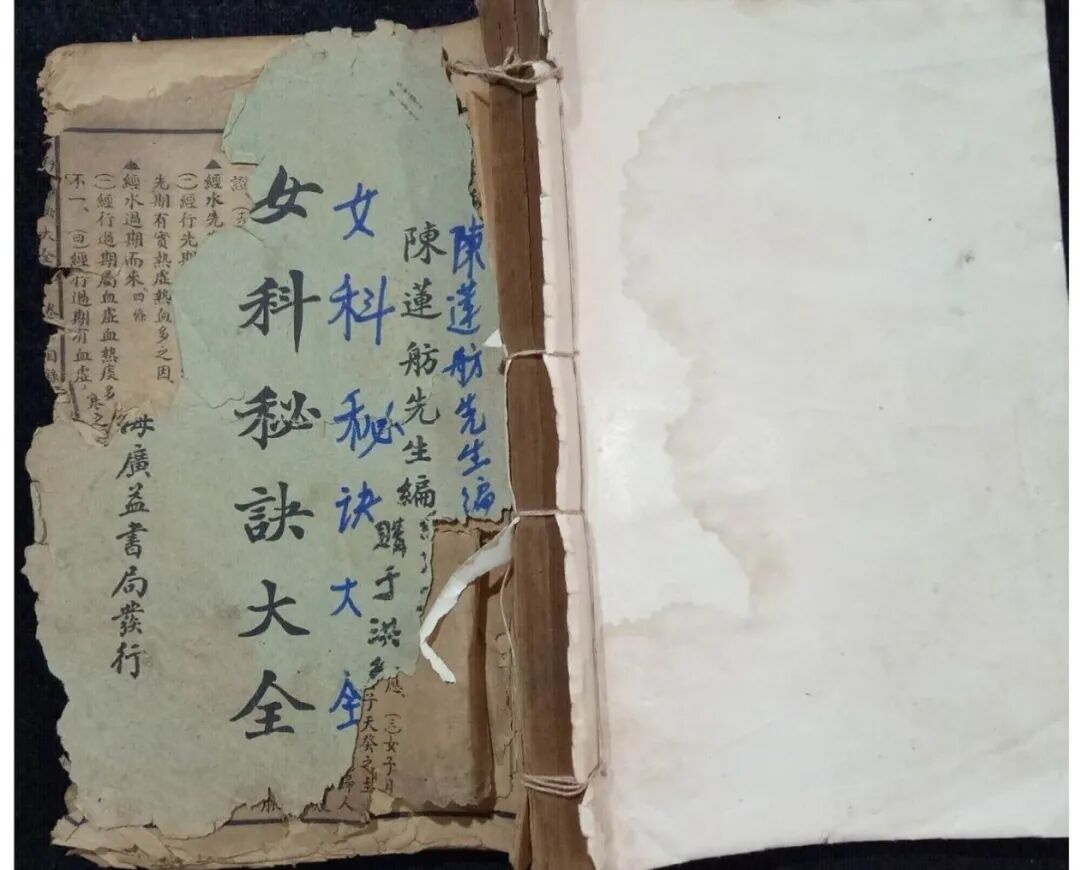 陳蓮舫先生編
陳蓮舫先生编
購于洪
女科秘诀大全
女科秘訣大全
海廣益書局發行
應、(三)女子月
子天癸之至
婦人
證
▲經水先
(一)經行先期
先期有實熱虛熱血多之因、
▲經水過期而來、四條
(一)經行過期屬血虛血熱痰多
不一、(四)經行過期有血虛、寒之
大全 卷 目錄 二